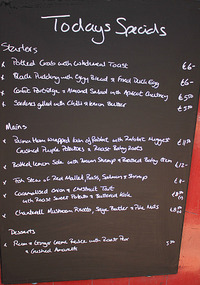 Todays Specials
Starters
Potted Crab with Watermeal Toast €6-
Black Pudding with Crispy Bread & Fried Duck Egg €6-
Confit Partridge & Almond Salad with Apricot Chutney €5.50
Sardines grilled with Chilli & lemon Butter €5.50
Mains
Parma Ham Wrapped Loin of Rabbit with Rabbit Nugget
Crushed Purple Potatoes & Roast Baby Roots
Potted lemon Sole with Brown Shrimp & Roasted Baby €12-
Fish Stew of Red Mullet, Bass, Salmon & Shrimp
Caramelised Onion & Chestnut Tart
with Roast Sweet Potato & Buttered Kale
Chanterelle Mushroom Risotto, Sage Butter & Pine Nuts
Desserts
Rum & Ginger Creme Brulee with Roast Pear
& Crushed Amaretti